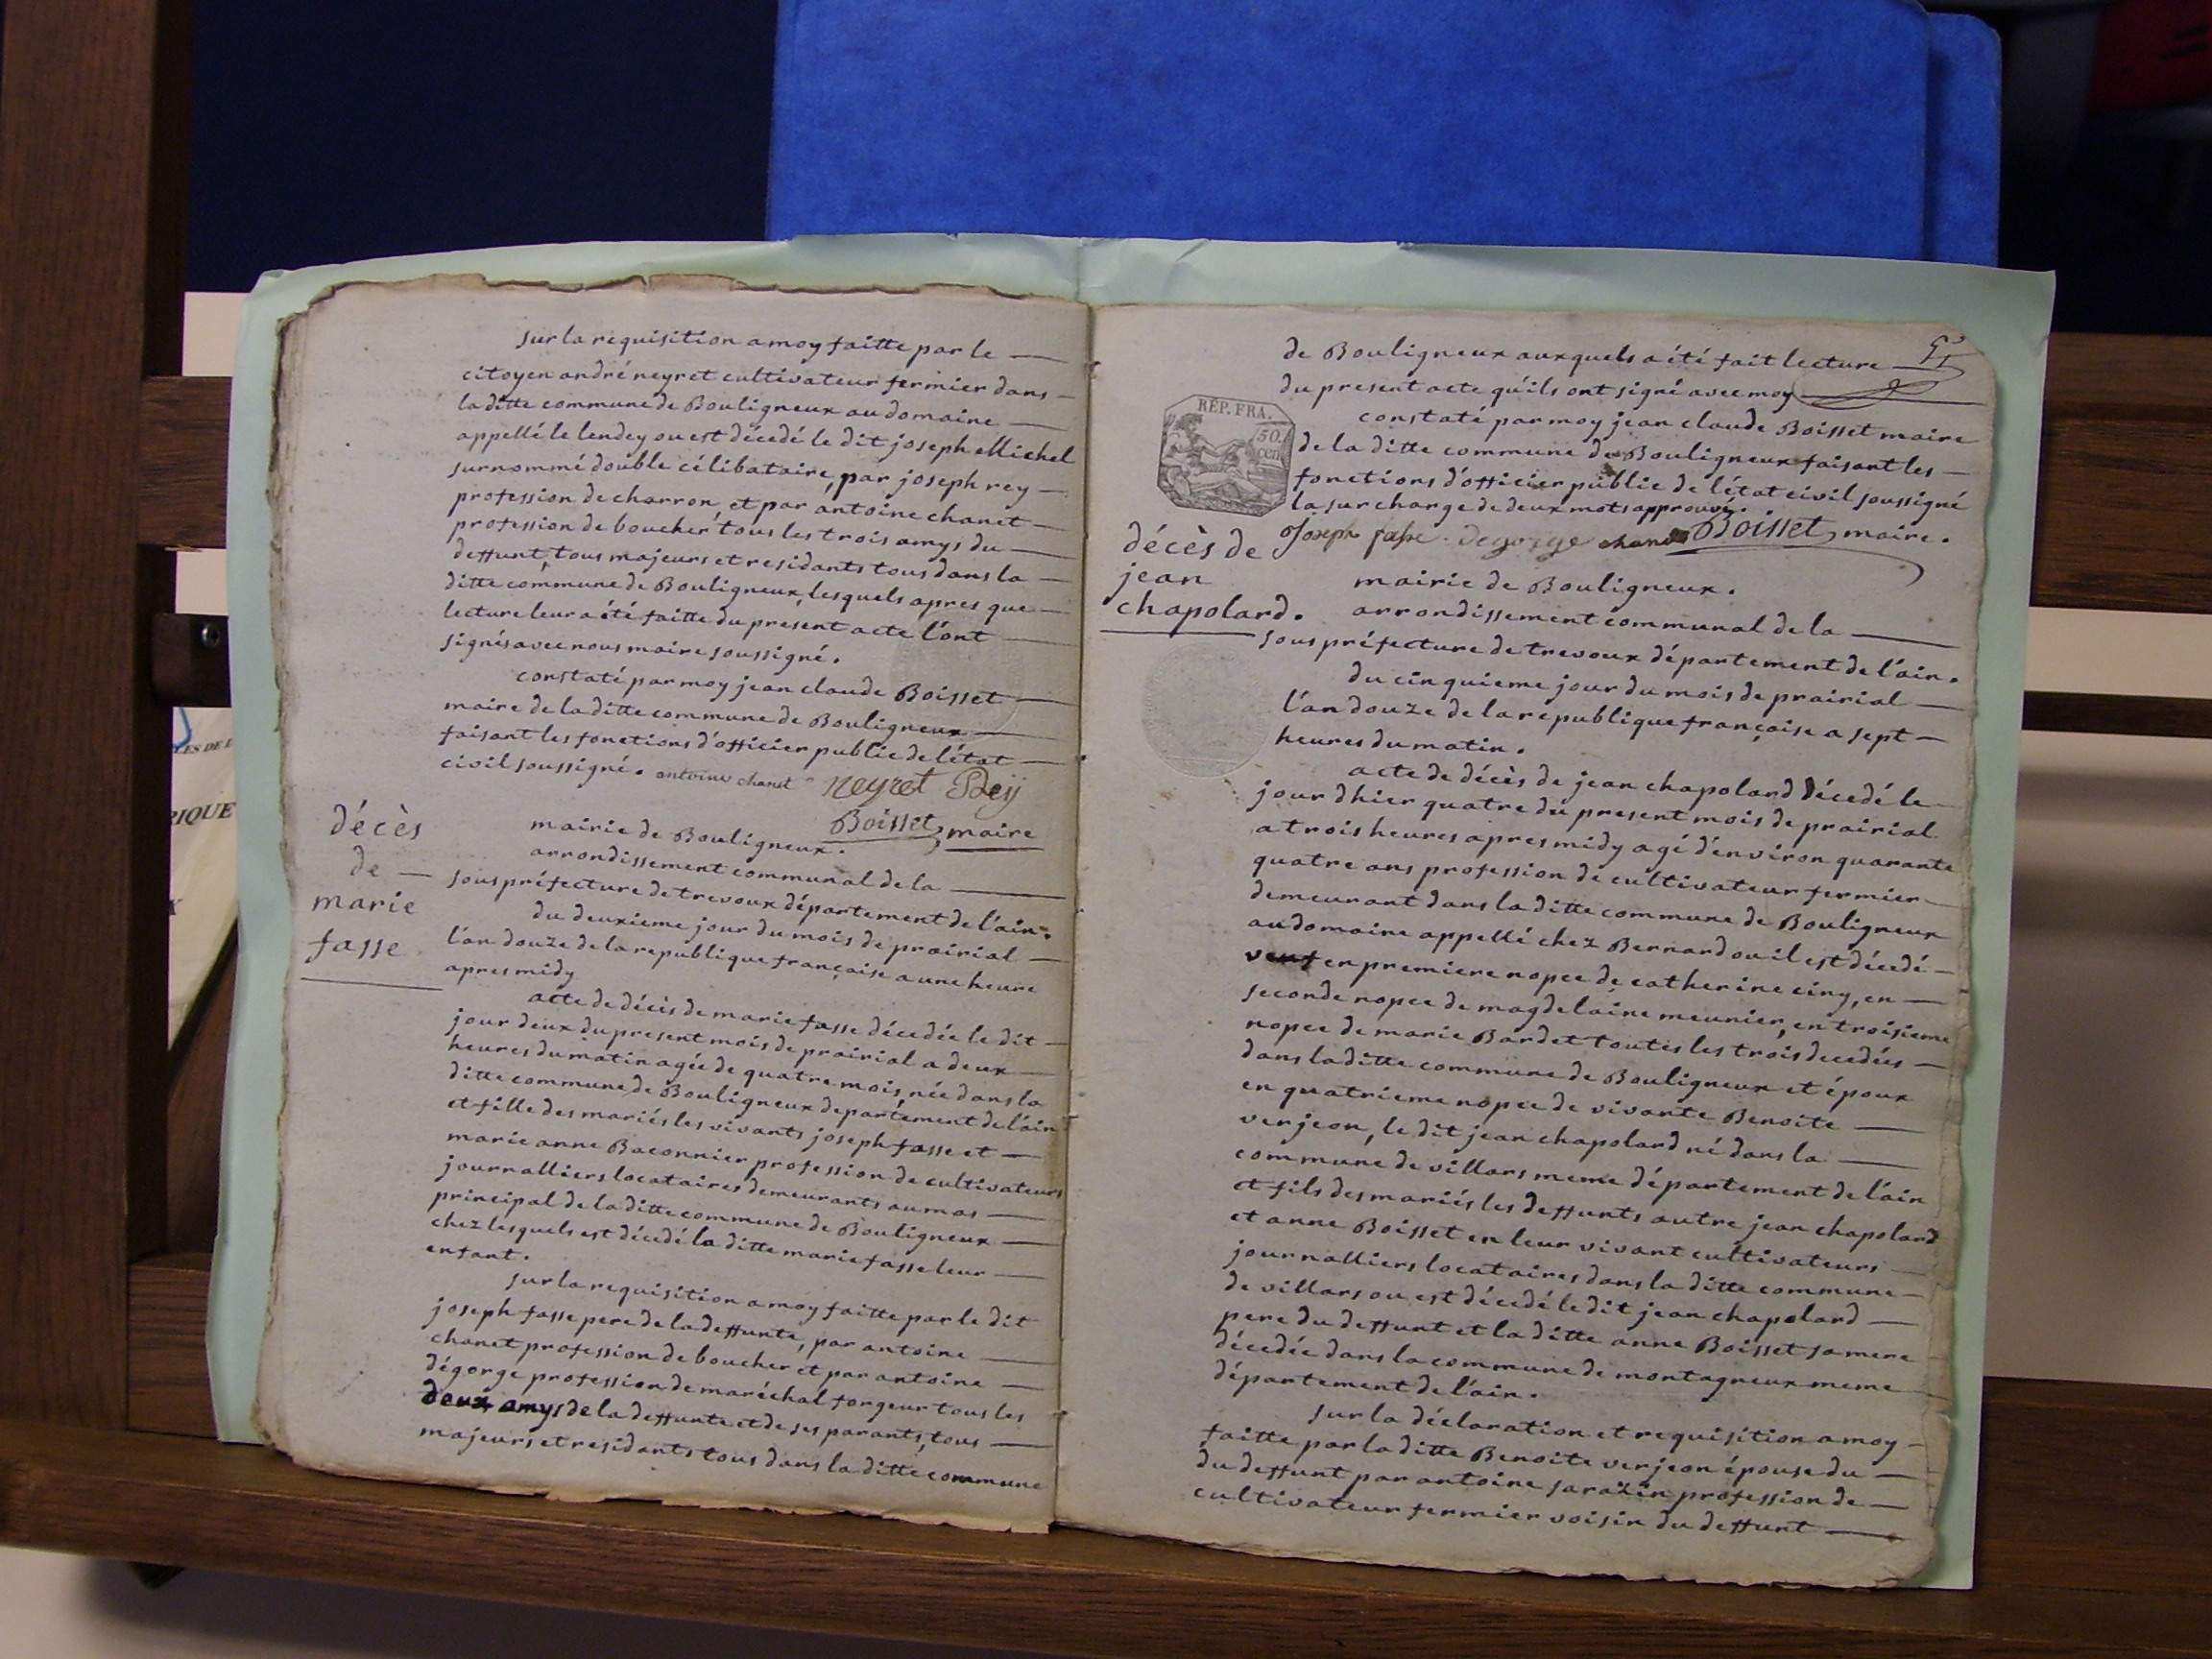 sur la requisition a moy faitte par le
citoyen andré neyret cultivateur fermier dans
la ditte commune de Bouligneux au domaine
appellé le lendey ou est décedé le dit joseph Michel
surnommé double célibataire, par joseph rey
profession de charron, et par antoine chanet
profession de boucher tous les trois amys du
deffunt, tous majeurs et residants tous dans la
ditte commune de Bouligneux, lesquels apres que
lecture leur a été faitte du present acte l'ont
signés avec nous maire soussigné.
constaté par moy jean claude Boisset
maire de la ditte commune de Bouligneux
faisant les fonctions d'officier public de l'état
civil soussigné. antoine chanet neyret Reij
Boisset, maire
décès
de
marie
fasse
mairie de Bouligneux.
arrondissement communal de la
sous préfecture de trevoux département de l'ain.
du deuxieme jour du mois de prairial
l'an douze de la republique française a une heure
apres midy
acte de décès de marie fasse décedée le dit
jour deux du present mois de prairial a deux
heures du matin agée de quatre mois, née dans la
ditte commune de Bouligneux departement de l'ain
et fille des mariés les vivants joseph fasse et
marie anne Baconnier profession de cultivateurs
journalliers locataires demeurants au mas
principal de la ditte commune de Bouligneux
chez lesquels est décedé la ditte marie fasse leur
enfant.
sur la requisition a moy faitte par le dit
joseph fasse pere de la deffunte, par antoine
chanet profession de boucher et par antoine
dégorge profession de maréchal forgeur tous les
deux amys de la deffunte et de ses parants, tous
majeurs et residants tous dans la ditte commune
de Bouligneux auxquels a été fait lecture
du present acte qu'ils ont signé avec moy
constaté par moy jean claude Boisset maire
de la ditte commune de Bouligneux faisant les
fonctions d'officier public de l'état civil soussigné
la surcharge de deux mots approuvé.
REP. FRA.
50.
cen
joseph fasse degorge chanet Boisset, maire.
décès de
jean
chapolard.
mairie de Bouligneux.
arrondissement communal de la
sous préfecture de trevoux département de l'ain.
du cinquieme jour du mois de prairial
l'an douze de la republique française a sept
heures du matin.
acte de décès de jean chapolard décedé le
jour dhier quatre du present mois de prairial
a trois heures apres midy agé d'environ quarante
quatre ans profession de cultivateur fermier
demeurant dans la ditte commune de Bouligneux
au domaine appellé chez Bernard ou il est décedé
veuf en premiere nopce de catherine ciny, en
seconde nopce de magdelaine meunier, en troisieme
nopce de marie Bardet toutes les trois decedées
dans la ditte commune de Bouligneux et époux
en quatrieme nopce de vivante Benoite
verjeon, le dit jean chapolard né dans la
commune de villars meme département de l'ain
et fils des mariés les deffunts autre jean chapolard
et anne Boisset en leur vivant cultivateurs
journalliers locataires dans la ditte commune
de villars ou est décedé le dit jean chapolard
pere du deffunt et la ditte anne Boisset sa mere
décedée dans la commune de montagneux meme
département de l'ain.
sur la déclaration et requisition a moy
faitte par la ditte Benoite verjeon épouse du
du deffunt par antoine sarazin profession de
cultivateur fermier voisin du deffunt